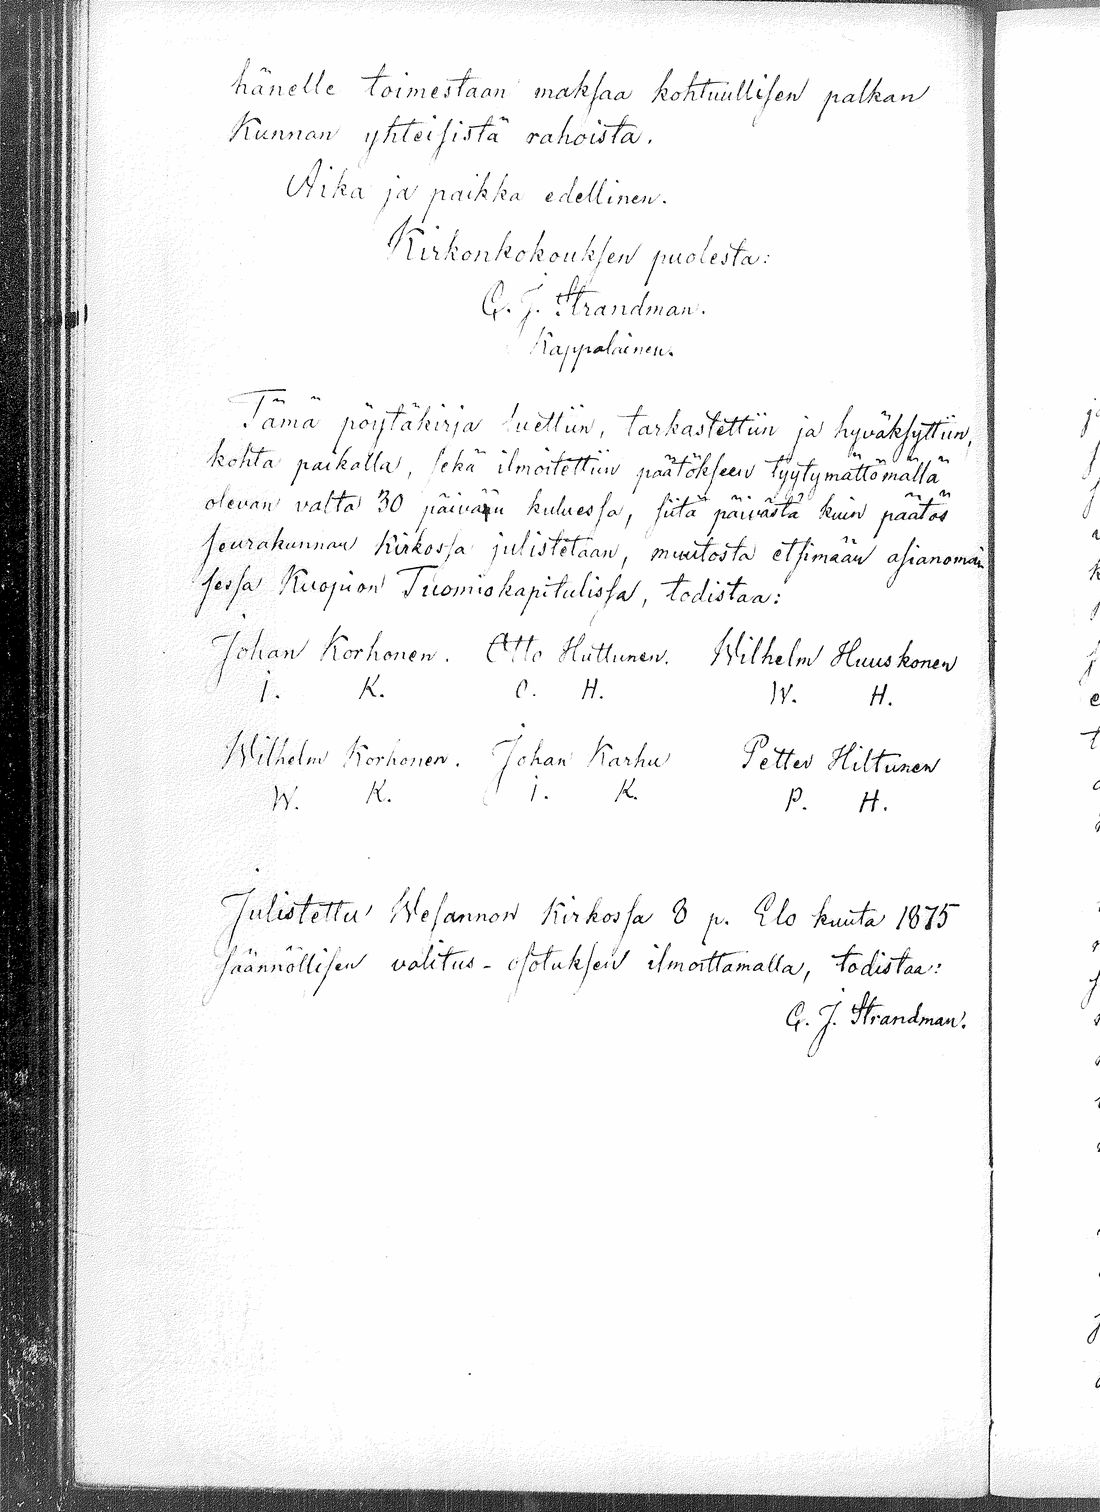 hänelle toimestaan maksaa kohtuullisen palkan
Kunnan yhteisistä rahoista.
Aika ja paikka edellinen.
Kirkonkokouksen puolesta:
G. J. Strandman.
Kappalainen.
Tämä pöytäkirja luettiin, tarkastettiin ja hyväksyttiin,
kohta paikalla, sekä ilmoitettiin päätökseen tyytymättömällä
olevan valta 30 päivän kuluessa, siitä päivästä kuin päätös
seurakunnan Kirkossa julistetaan, muutosta etsimään asianomai
sessa Kuopion Tuomiokapitulissa, todistaa:
Johan Korhonen. Otto Huttunen. Wilhelm Huuskonen
J. K. O. H. W. H.
Wilhelm Korhonen. Johan Karhu Petter Hiltunen
W. K. J. K. P. H.
Julistettu Wesannon Kirkossa 8 p. Elo kuuta 1875
säännöllisen valitus-osotuksen ilmoittamalla, todistaa:
G. J. Strandman.